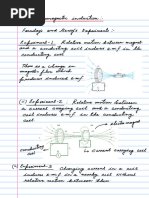 Electromagnetic induction :-
Faraday and Henry's Experiment :
Experiment-1. Relative motion between magnet
and a conducting coil induces e.m.f in the
conducting coil
There is a change in
magnetic flux which
produces induced
e.m.f
(ii) Experiment-2. Relative motion between
a current carrying coil and a conducting
coil induces e.m.f in the conducting coil.
current carrying coil
(iii) Experiment-3 Changing current in a coil
induces e.m.f in a nearby coil without
relative motion between them